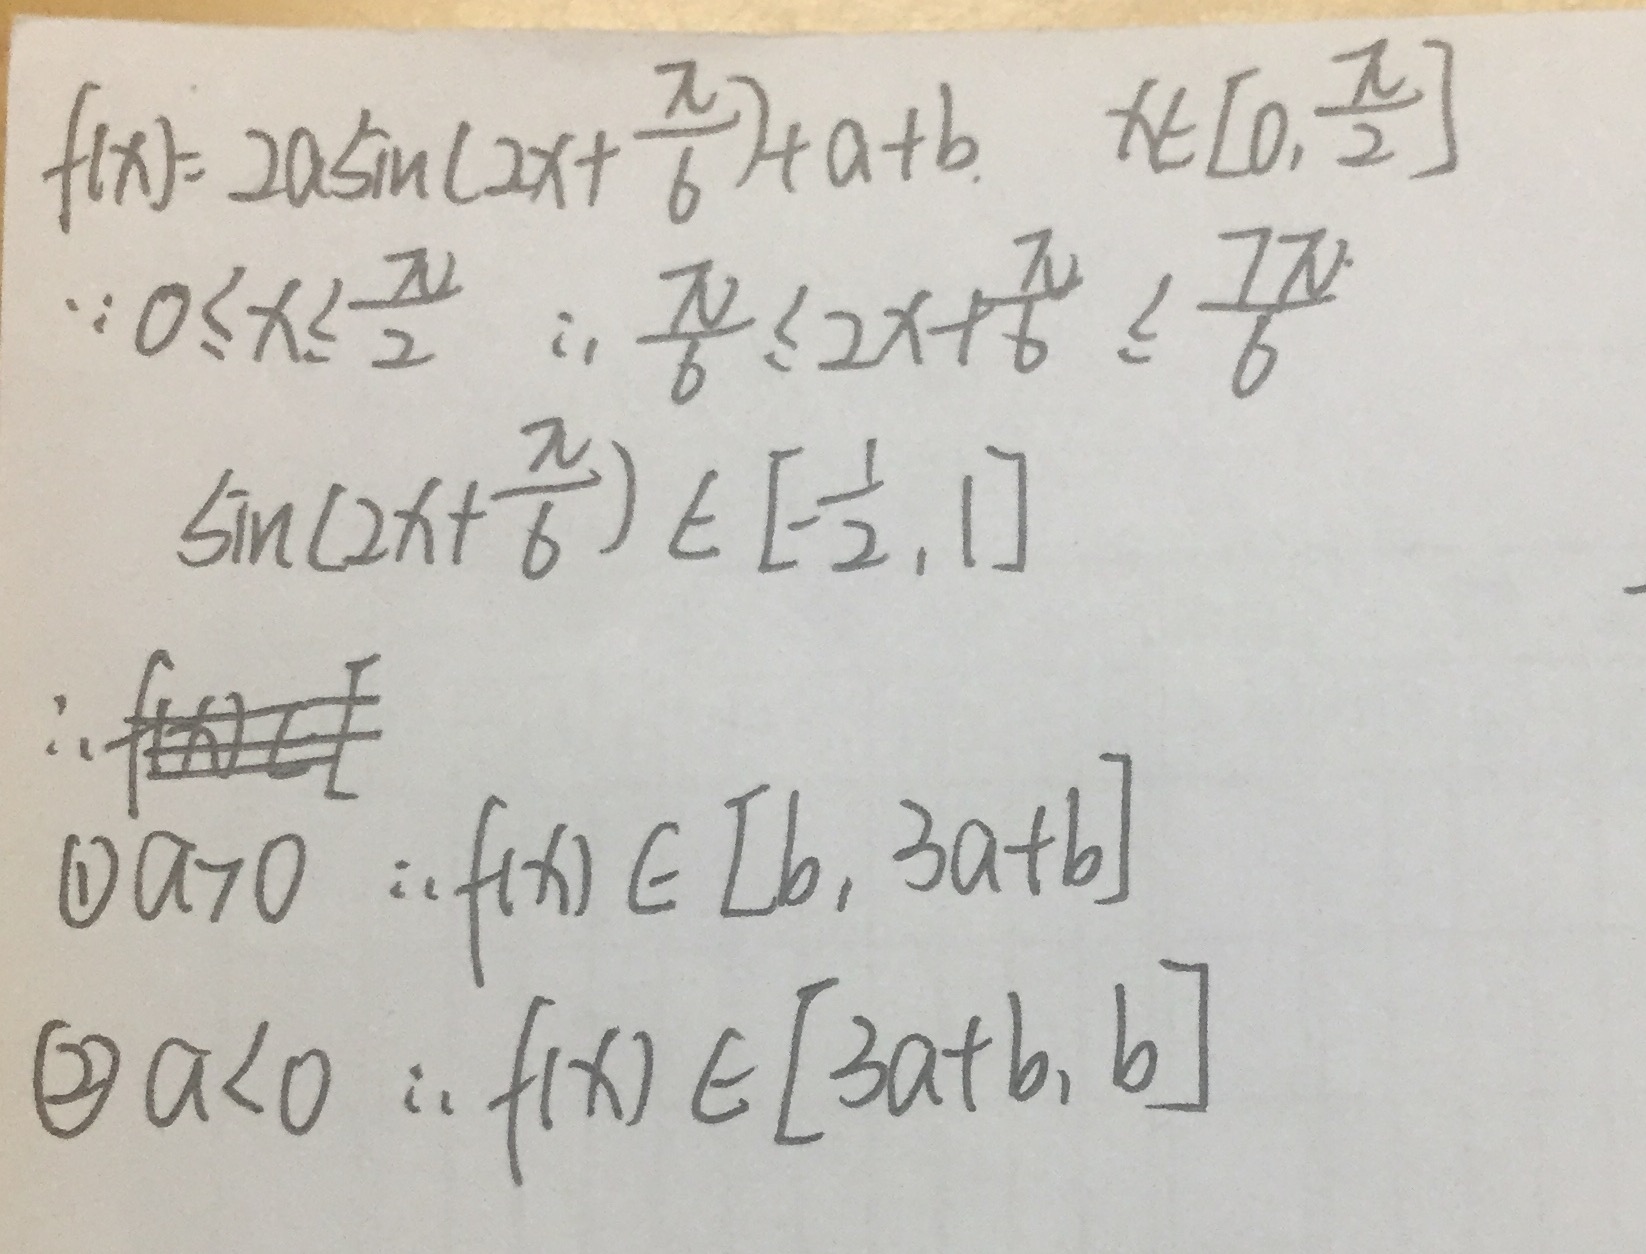 f(x)=2asin(2x+π/6)+a+b. x∈[0,π/2]
∵0≤x≤π/2 ∴π/6≤2x+π/6≤7π/6
sin(2x+π/6)∈[-1/2,1]
∴f(x)∈[
①a>0 ∴f(x)∈[b,3a+b]
②a<0 ∴f(x)∈[3a+b,b]